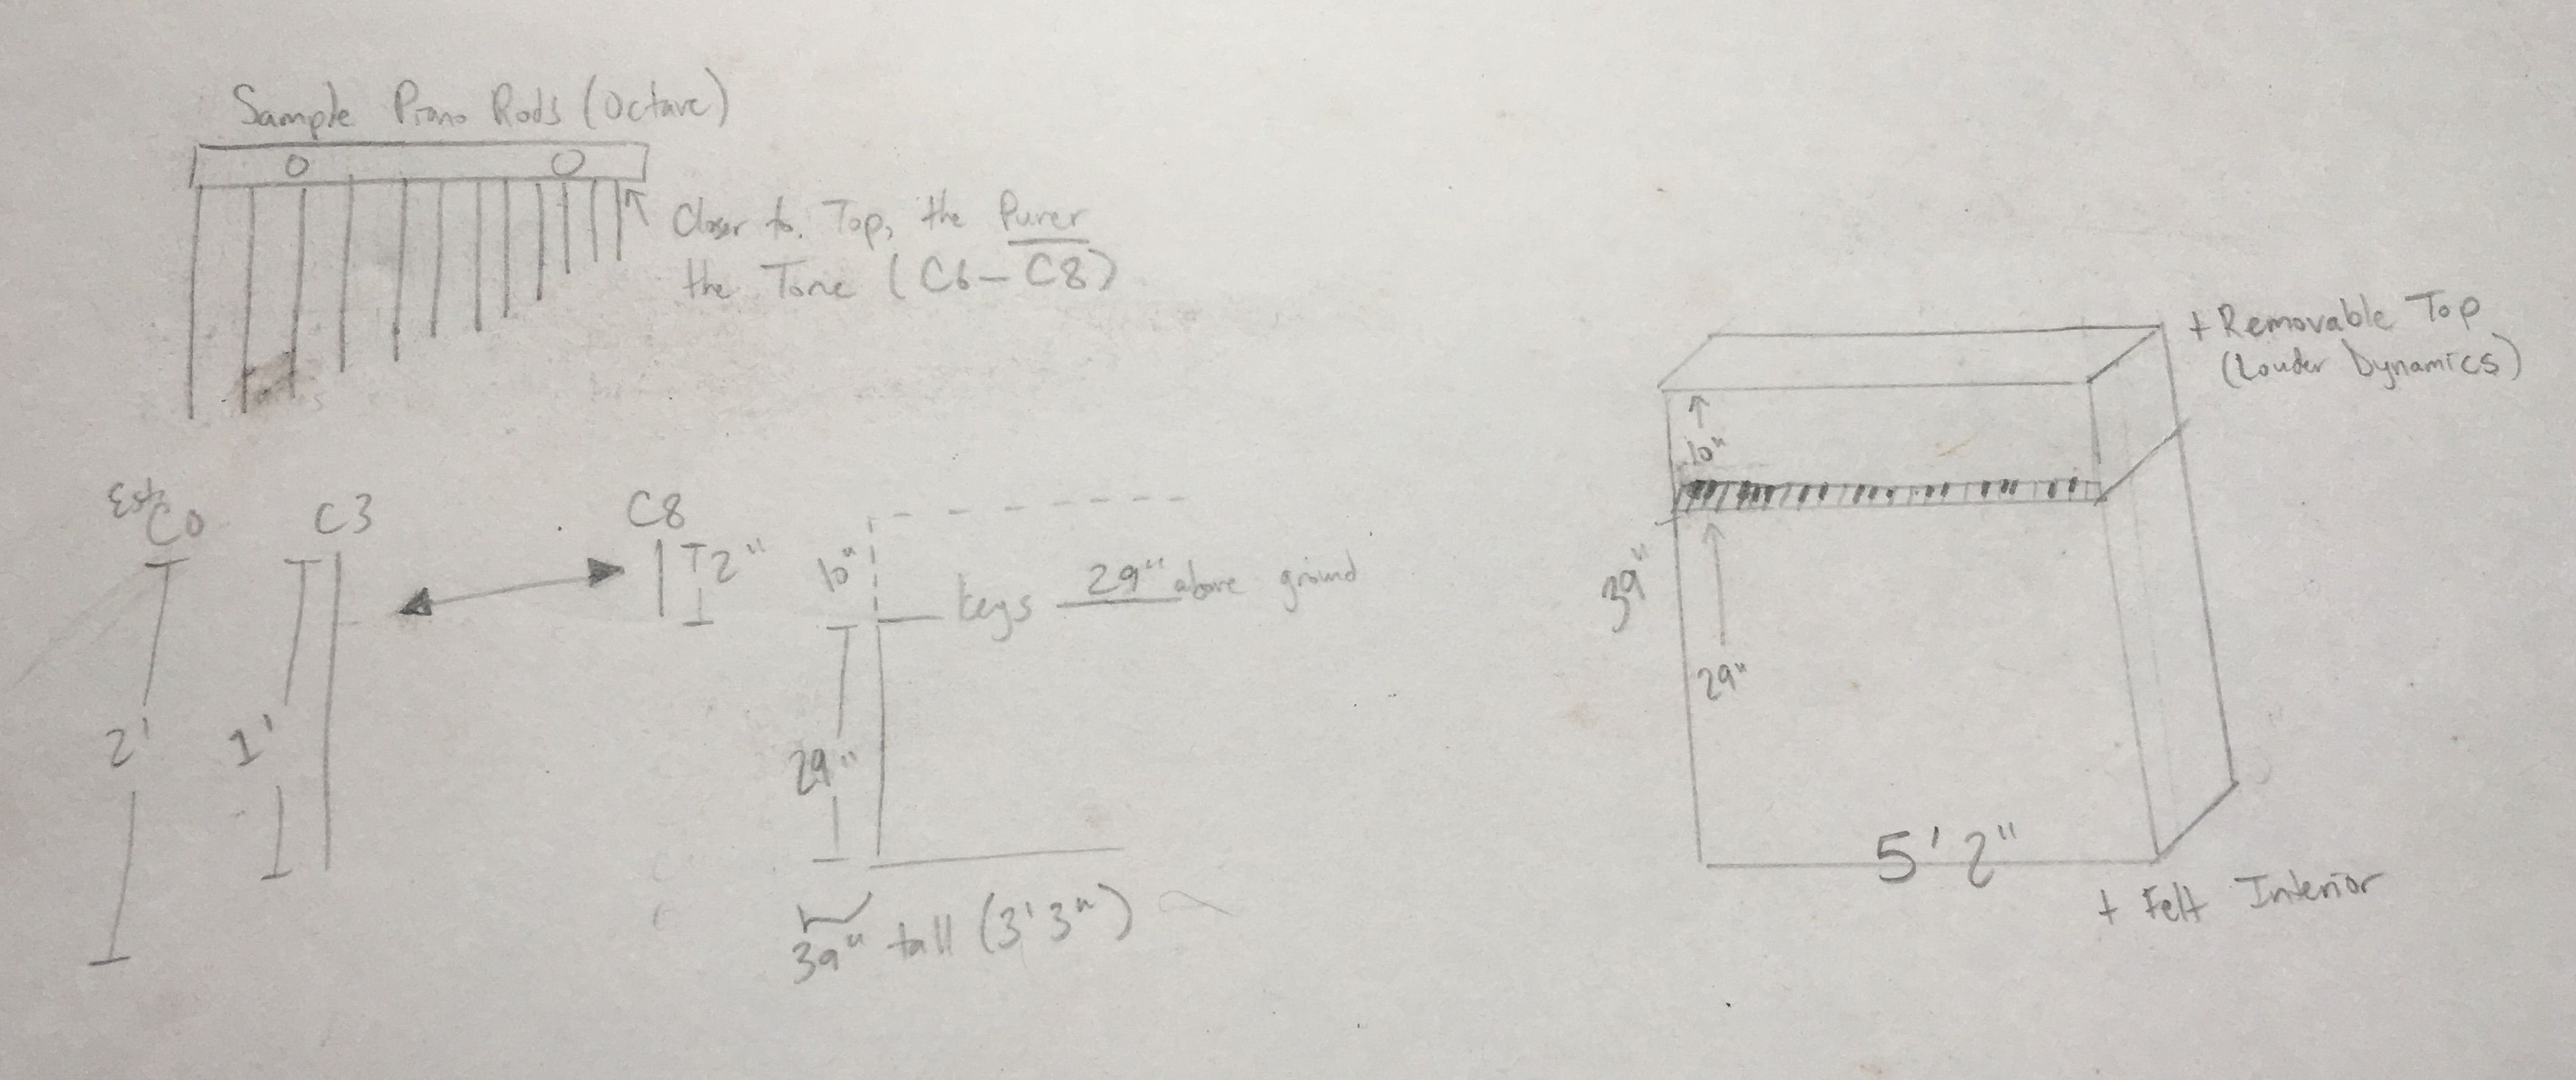 Sample Piano Rods (Octave)
Closer to. Top, the Purer
the Tone (C6-C8)
Est.
C0
C3
C8
2"
2'
1'
10"
Keys 29" above ground
29"
39" tall (3'3")
+ Removable Top
(Louder Dynamics)
10"
39"
29"
5'2"
+ Felt Interior